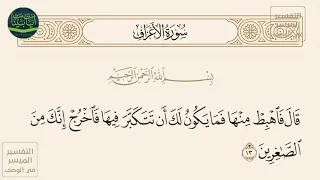 سُورَةُ الأَعْرَافِ
بِسْمِ اللَّهِ الرَّحْمَٰنِ الرَّحِيمِ
قَالَ فَٱهْبِطْ مِنْهَا فَمَا يَكُونُ لَكَ أَن تَتَكَبَّرَ فِيهَا فَٱخْرُجْ إِنَّكَ مِنَ
ٱلصَّٰغِرِينَ ١٣
التفسير
الميسر
في الوصف